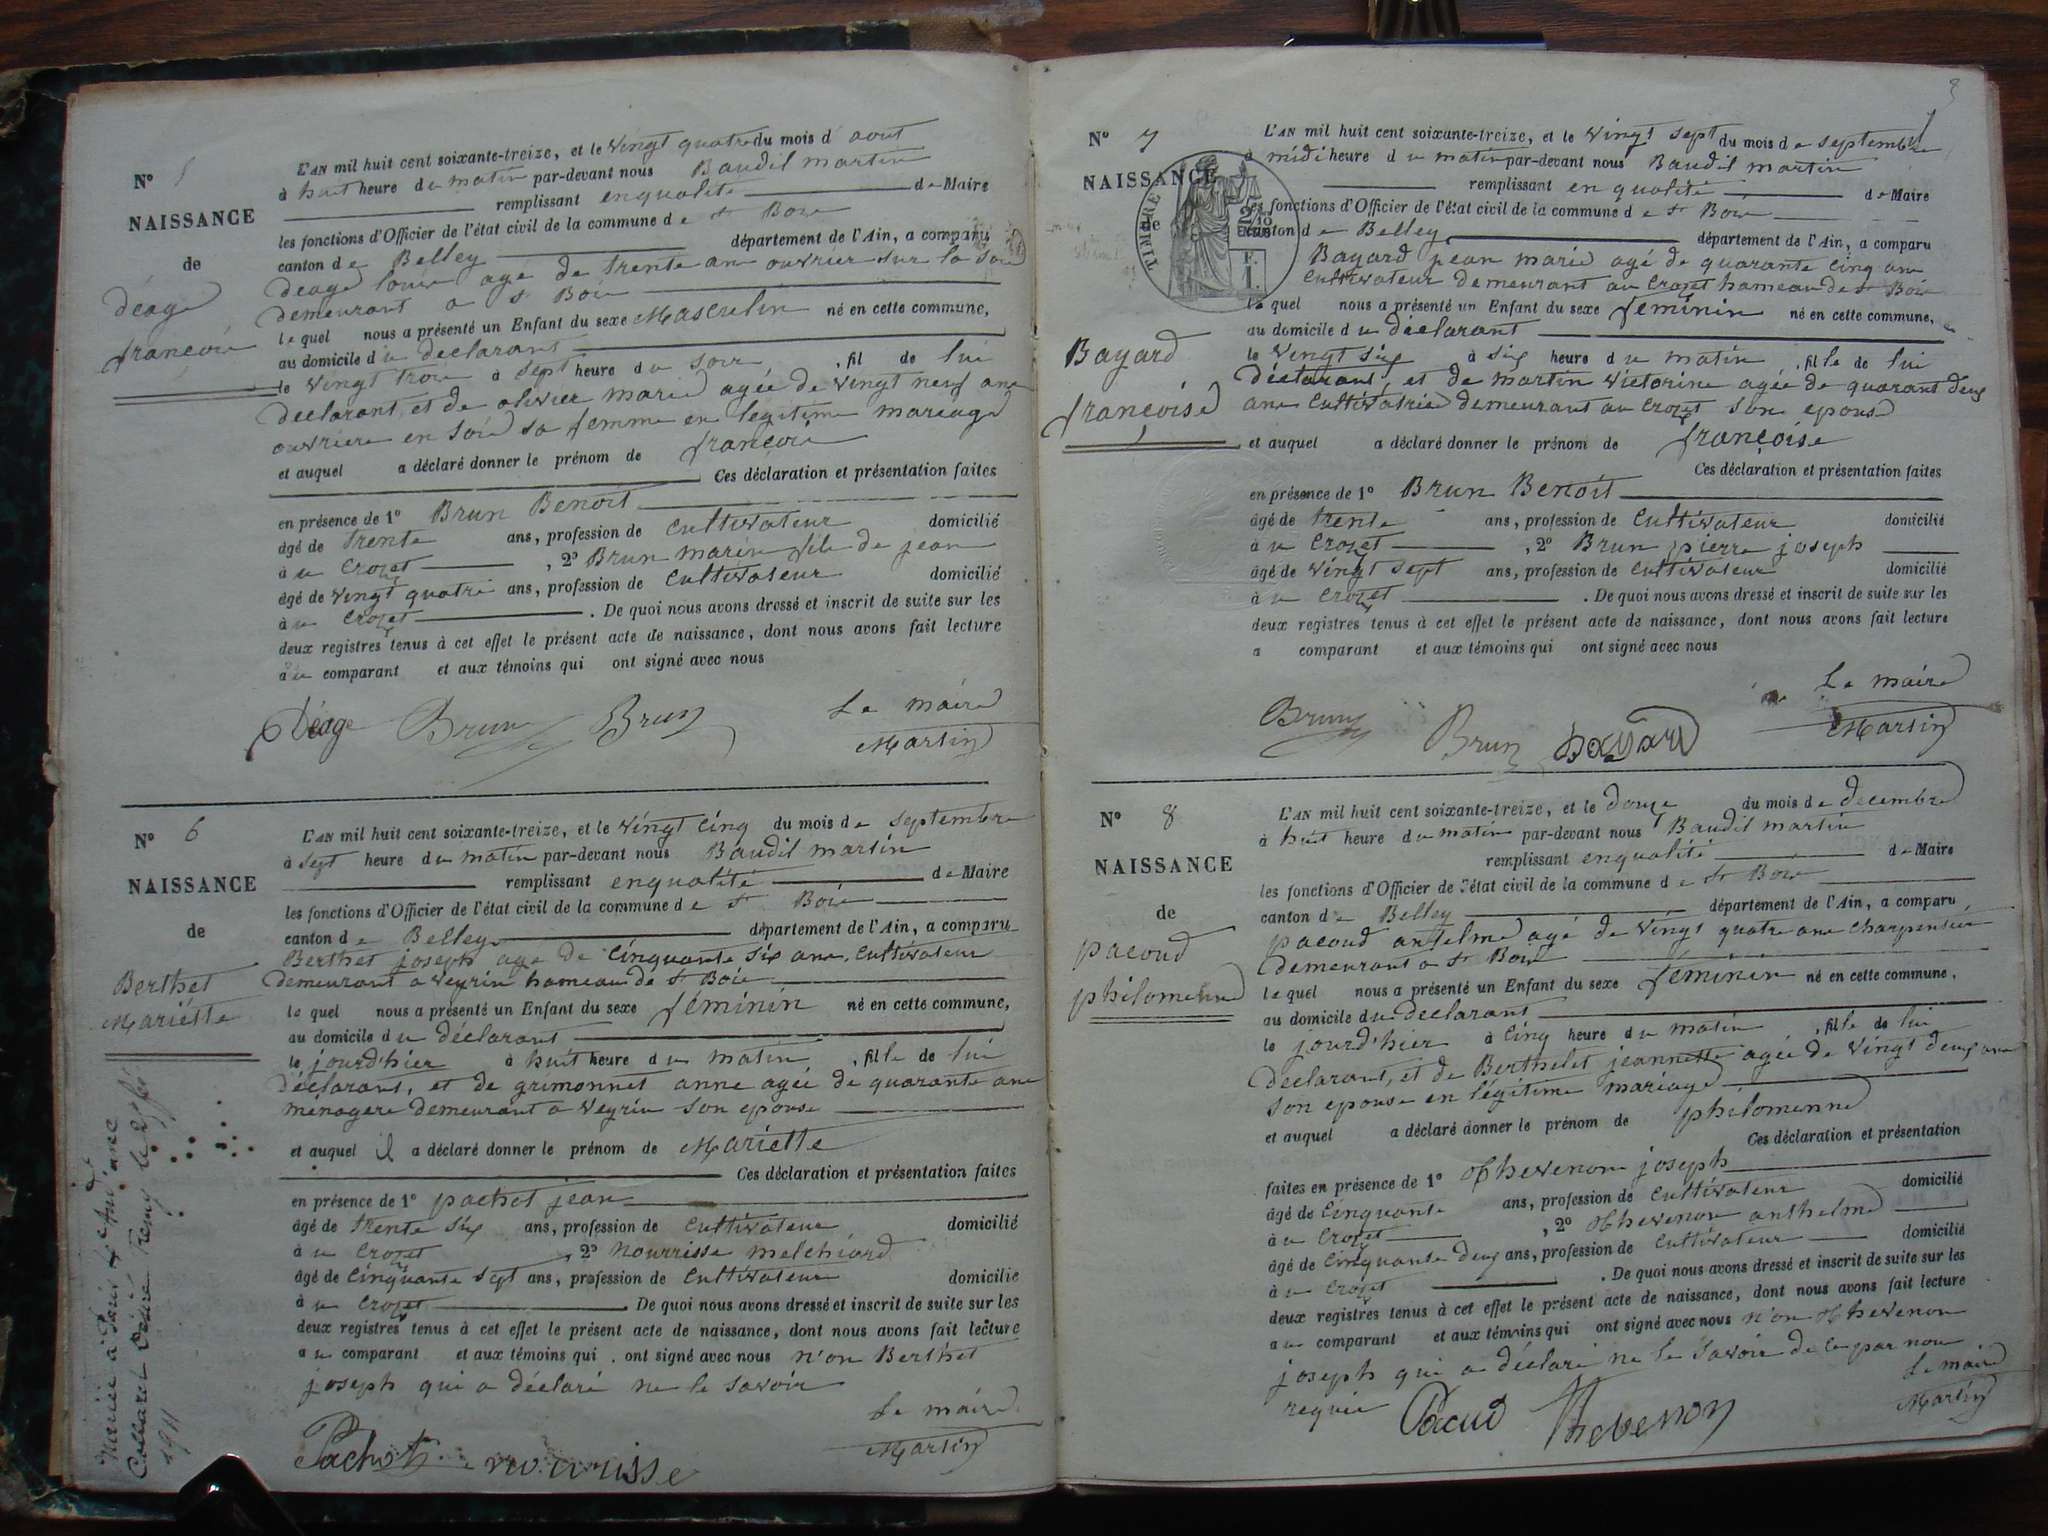 N° 5
NAISSANCE
de
déage
francois
L'AN mil huit cent soixante-treize, et le vingt quatre du mois d' aout
à huit heure du matin par-devant nous Baudil martin
remplissant en qualité de Maire
les fonctions d'Officier de l'état civil de la commune de St Bois
canton de Belley département de l'Ain, a comparu
déage louis agé de trente ans ouvrier sur la soie
demeurant a St Bois
le quel nous a présenté un Enfant du sexe Masculin né en cette commune,
au domicile du déclarant
le vingt trois à sept heure du soir, fil de lui
declarant, et de olivier marie agée de vingt neuf ans
ouvriere en soie sa femme en legitime mariage
et auquel a déclaré donner le prénom de francois
Ces déclaration et présentation faites
en présence de 1° Brun Benoit
âgé de trente ans, profession de cultivateur domicilié
à u Crozet, 2° Brun marin fils de jean
âgé de vingt quatre ans, profession de cultivateur domicilié
à u Crozet. De quoi nous avons dressé et inscrit de suite sur les
deux registres tenus à cet effet le présent acte de naissance, dont nous avons fait lecture
au comparant et aux témoins qui ont signé avec nous
Déage Brun Brun Le maire
Martin
N° 6
NAISSANCE
de
Berthet
Mariette
L'AN mil huit cent soixante-treize, et le vingt cinq du mois de septembre
à sept heure du matin par-devant nous Baudil martin
remplissant en qualité de Maire
les fonctions d'Officier de l'état civil de la commune de St Bois
canton de Belley département de l'Ain, a comparu
Berthet joseph agé de cinquante six ans, cultivateur
demeurant a Veyrin hameau de St Bois
le quel nous a présenté un Enfant du sexe féminin né en cette commune,
au domicile du déclarant
le jourd'hier à huit heure du matin, fille de lui
déclarant, et de grimonnet anne agée de quarante ans
ménagere demeurant a Veyrin son epouse
et auquel il a déclaré donner le prénom de Mariette
Ces déclaration et présentation faites
en présence de 1° pachet jean
âgé de trente six ans, profession de cultivateur domicilié
à u Crozet, 2° nourrisse melchiord
âgé de cinquante sept ans, profession de cultivateur domicilié
à u Crozet. De quoi nous avons dressé et inscrit de suite sur les
deux registres tenus à cet effet le présent acte de naissance, dont nous avons fait lecture
au comparant et aux témoins qui ont signé avec nous n'on Berthet
joseph qui a déclaré ne le savoir
Le maire
Pachet nourrisse Martin
Mariée à Paris
Collaret Désiré Remy le
1911
8
N° 7
NAISSANCE
de
TIMBRE
2/10
EN SUS
F.
1.
Bayard
françoise
L'AN mil huit cent soixante-treize, et le vingt sept du mois de septembre
à midi heure du matin par-devant nous Baudil martin
remplissant en qualité de Maire
les fonctions d'Officier de l'état civil de la commune de St Bois
canton de Belley département de l'Ain, a comparu
Bayard jean marie agé de quarante cinq ans
cultivateur demeurant au Crozet hameau de St Bois
le quel nous a présenté un Enfant du sexe féminin né en cette commune,
au domicile du déclarant
le vingt six à six heure du matin, fille de lui
déclarant, et de martin victorine agée de quarant deux
ans cultivatrice demeurant au Crozet son epouse
et auquel a déclaré donner le prénom de françoise
Ces déclaration et présentation faites
en présence de 1° Brun Benoit
âgé de trente ans, profession de cultivateur domicilié
à u Crozet, 2° Brun pierre joseph
âgé de vingt sept ans, profession de cultivateur domicilié
à u Crozet. De quoi nous avons dressé et inscrit de suite sur les
deux registres tenus à cet effet le présent acte de naissance, dont nous avons fait lecture
a comparant et aux témoins qui ont signé avec nous
Le maire
Brun Brun Bayard Martin
N° 8
NAISSANCE
de
pacoud
philomenne
L'AN mil huit cent soixante-treize, et le douze du mois de decembre
à huit heure du matin par-devant nous Baudil martin
remplissant en qualité de Maire
les fonctions d'Officier de l'état civil de la commune de St Bois
canton de Belley département de l'Ain, a comparu
pacoud antelme agé de vingt quatre ans charpentier
demeurant a St Bois
le quel nous a présenté un Enfant du sexe féminin né en cette commune,
au domicile du declarant
le jourd'hier à cinq heure du matin, fille de lui
declarant, et de Berthelet jeannette agée de vingt deux ans
son epouse en légitime mariage
et auquel a déclaré donner le prénom de philomenne
Ces déclaration et présentation
faites en présence de 1° thevenon joseph
âgé de cinquante ans, profession de cultivateur domicilié
à u Crozet, 2° thevenon anthelme
âgé de cinquante deux ans, profession de cultivateur domicilié
à u Crozet. De quoi nous avons dressé et inscrit de suite sur les
deux registres tenus à cet effet le présent acte de naissance, dont nous avons fait lecture
au comparant et aux témoins qui ont signé avec nous n'on thevenon
joseph qui a déclaré ne le savoir de ce par nous
requis Le maire
Pacud Thevenon Martin